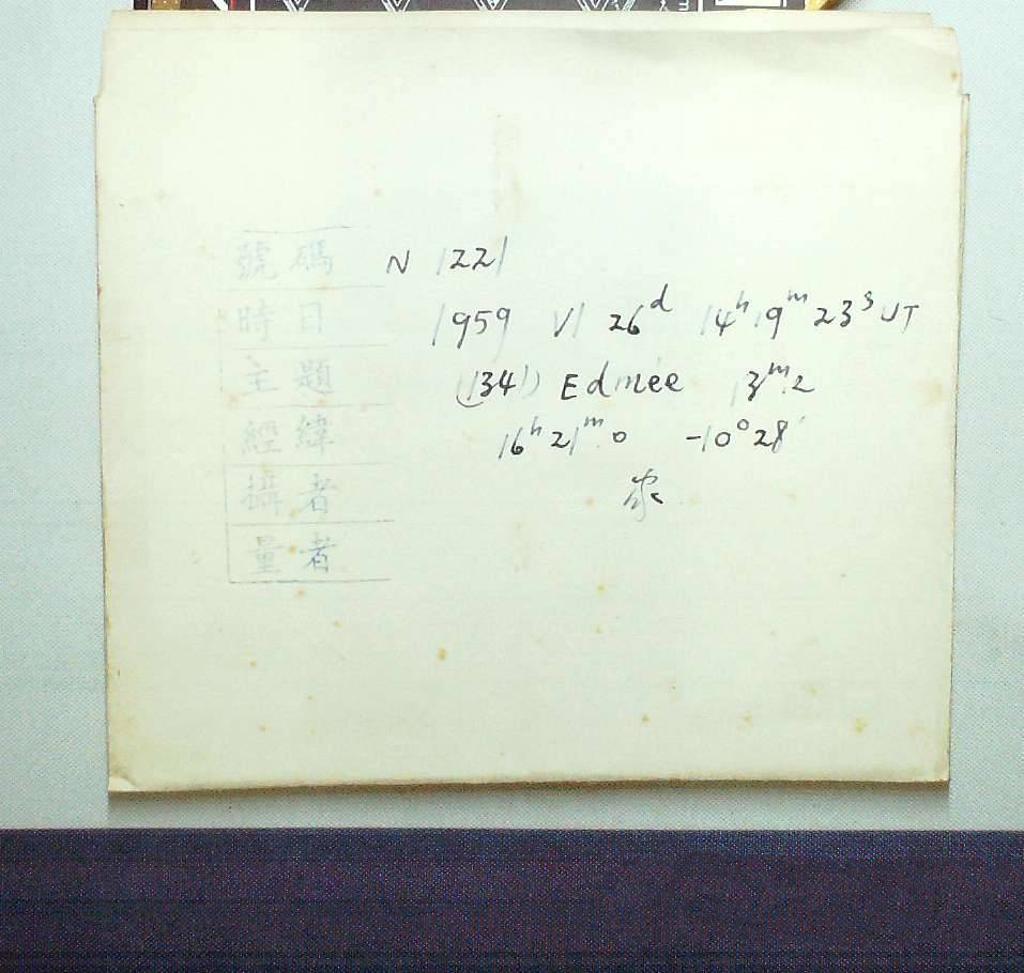 號碼 N 1221
時日 1959 VI 26ᵈ 14ʰ 19ᵐ 23ˢ UT
主題 (1341) Edmée 13ᵐ.2
經緯 16ʰ 21ᵐ.0 -10°28'
攝者
量者